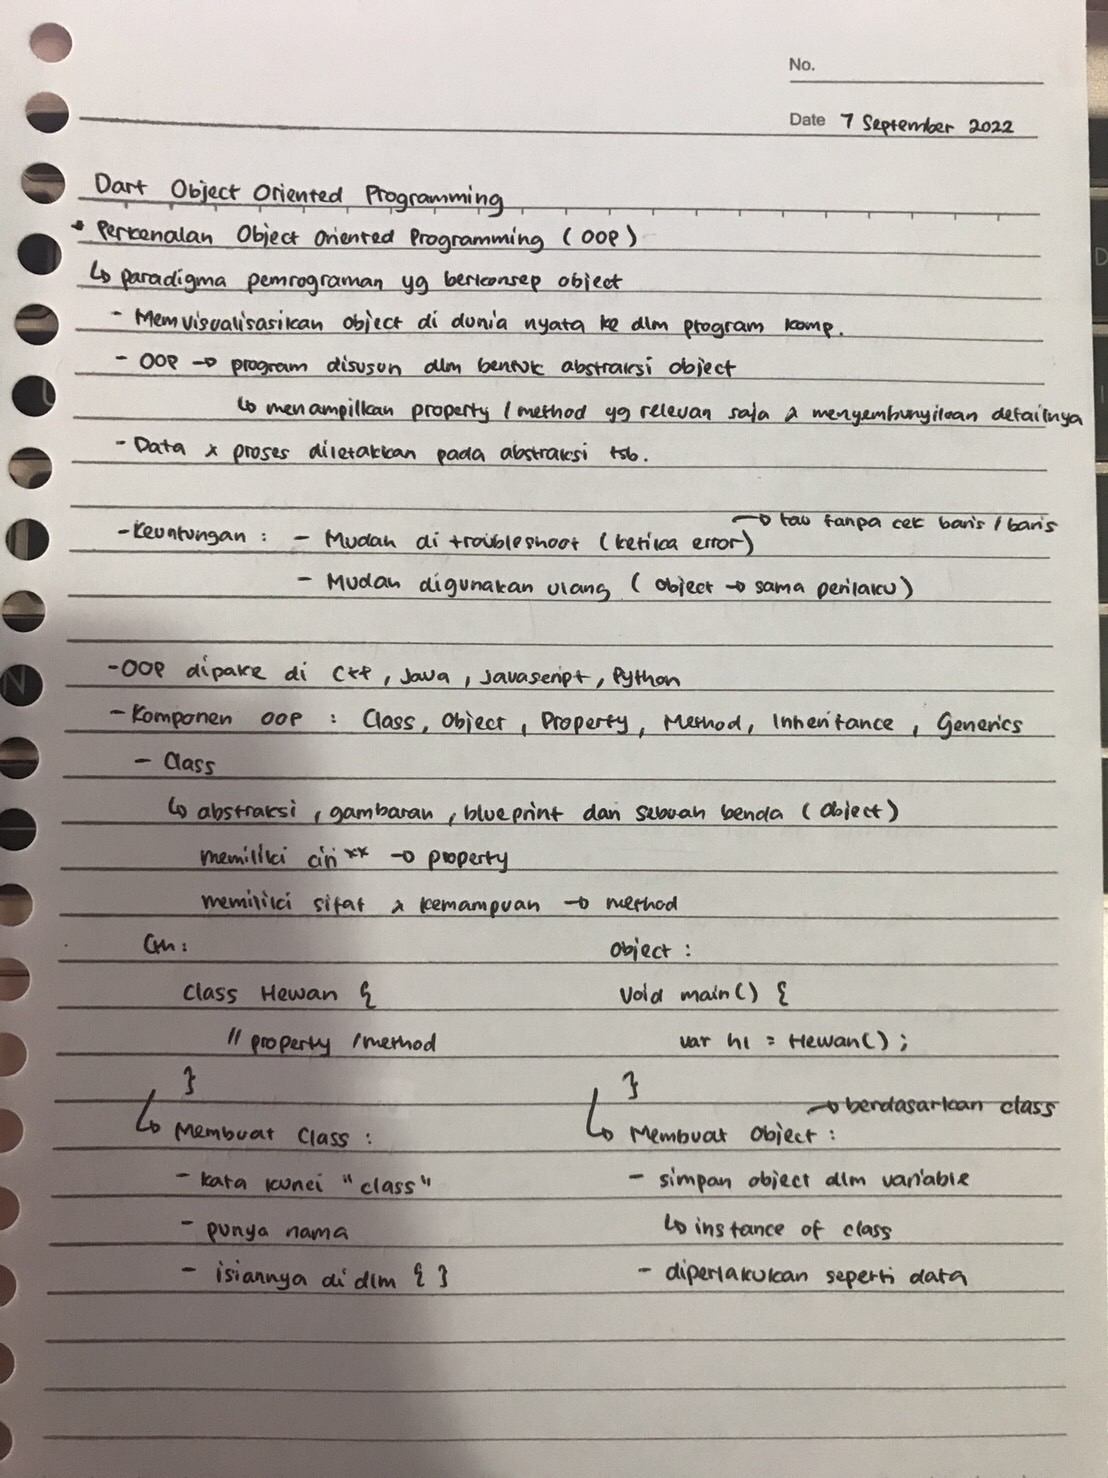 No.
Date 7 September 2022
Dart Object Oriented Programming
* Perkenalan Object Oriented Programming (OOP)
↳ paradigma pemrograman yg berkonsep object
- Memvisualisasikan object di dunia nyata ke dlm program komp.
- OOP → program disusun dlm bentuk abstraksi object
↳ menampilkan property / method yg relevan saja & menyembunyikan detailnya
- Data & proses diletakkan pada abstraksi tsb.
→ tau tanpa cek baris / baris
- Keuntungan : - Mudah di troubleshoot (ketika error)
- Mudah digunakan ulang ( object → sama perilaku )
- OOP dipake di C++, Java, Javascript, Python
- Komponen OOP : Class, Object, Property, Method, Inheritance, Generics
- Class
↳ abstraksi, gambaran, blueprint dari sebuah benda (Object)
memiliki ciri** → property
memiliki sifat & kemampuan → method
Cth: Object :
Class Hewan { Void main() {
// property / method var h1 = Hewan();
} }
→ berdasarkan class
↳ Membuat Class : ↳ Membuat Object :
- kata kunci "class" - simpan object dlm variable
- punya nama ↳ instance of class
- isiannya di dlm { } - diperlakukan seperti data